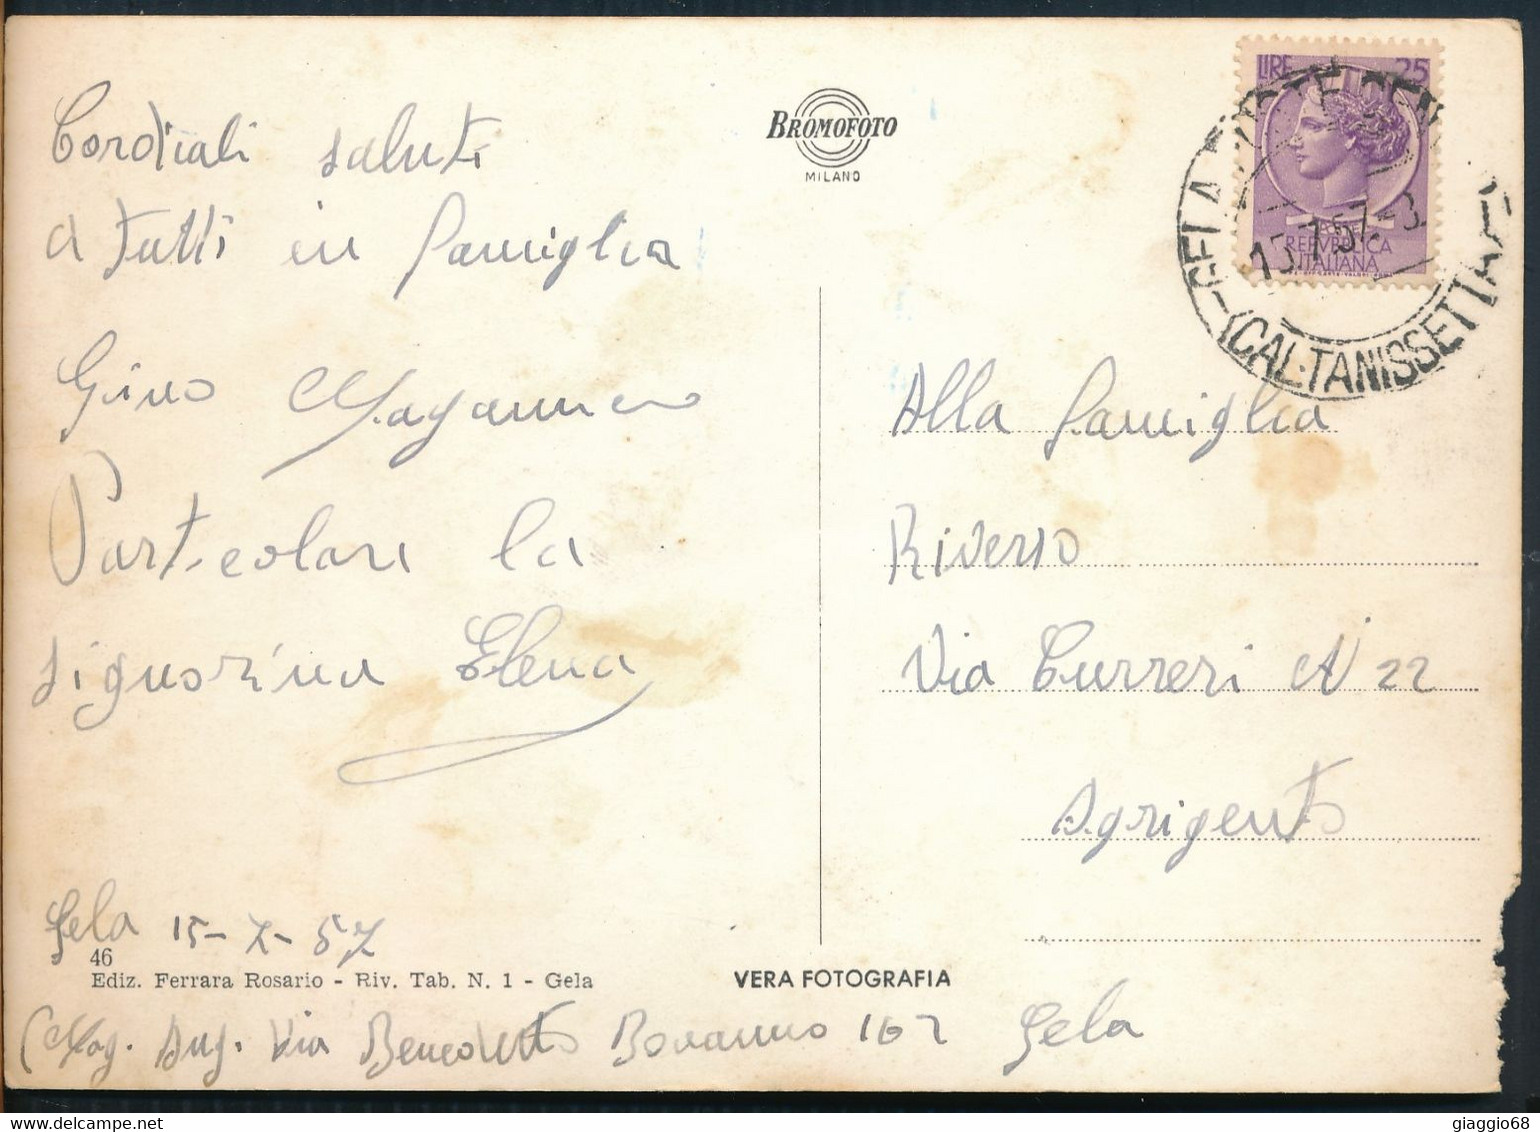 Cordiali saluti
a tutti in famiglia
Gino
Particolare la
signorina Elena
Gela 15-7-57
46
Ediz. Ferrara Rosario - Riv. Tab. N. 1 - Gela
Mag. Ang. Via Benedetto Bonanno 162 Gela
BROMOFOTO
MILANO
VERA FOTOGRAFIA
LIRE 25
REPVBBLICA
ITALIANA
GELA POSTE
15.7.57
(CALTANISSETTA)
Alla famiglia
Riverso
Via Curreri N 22
Agrigento
giaggio68